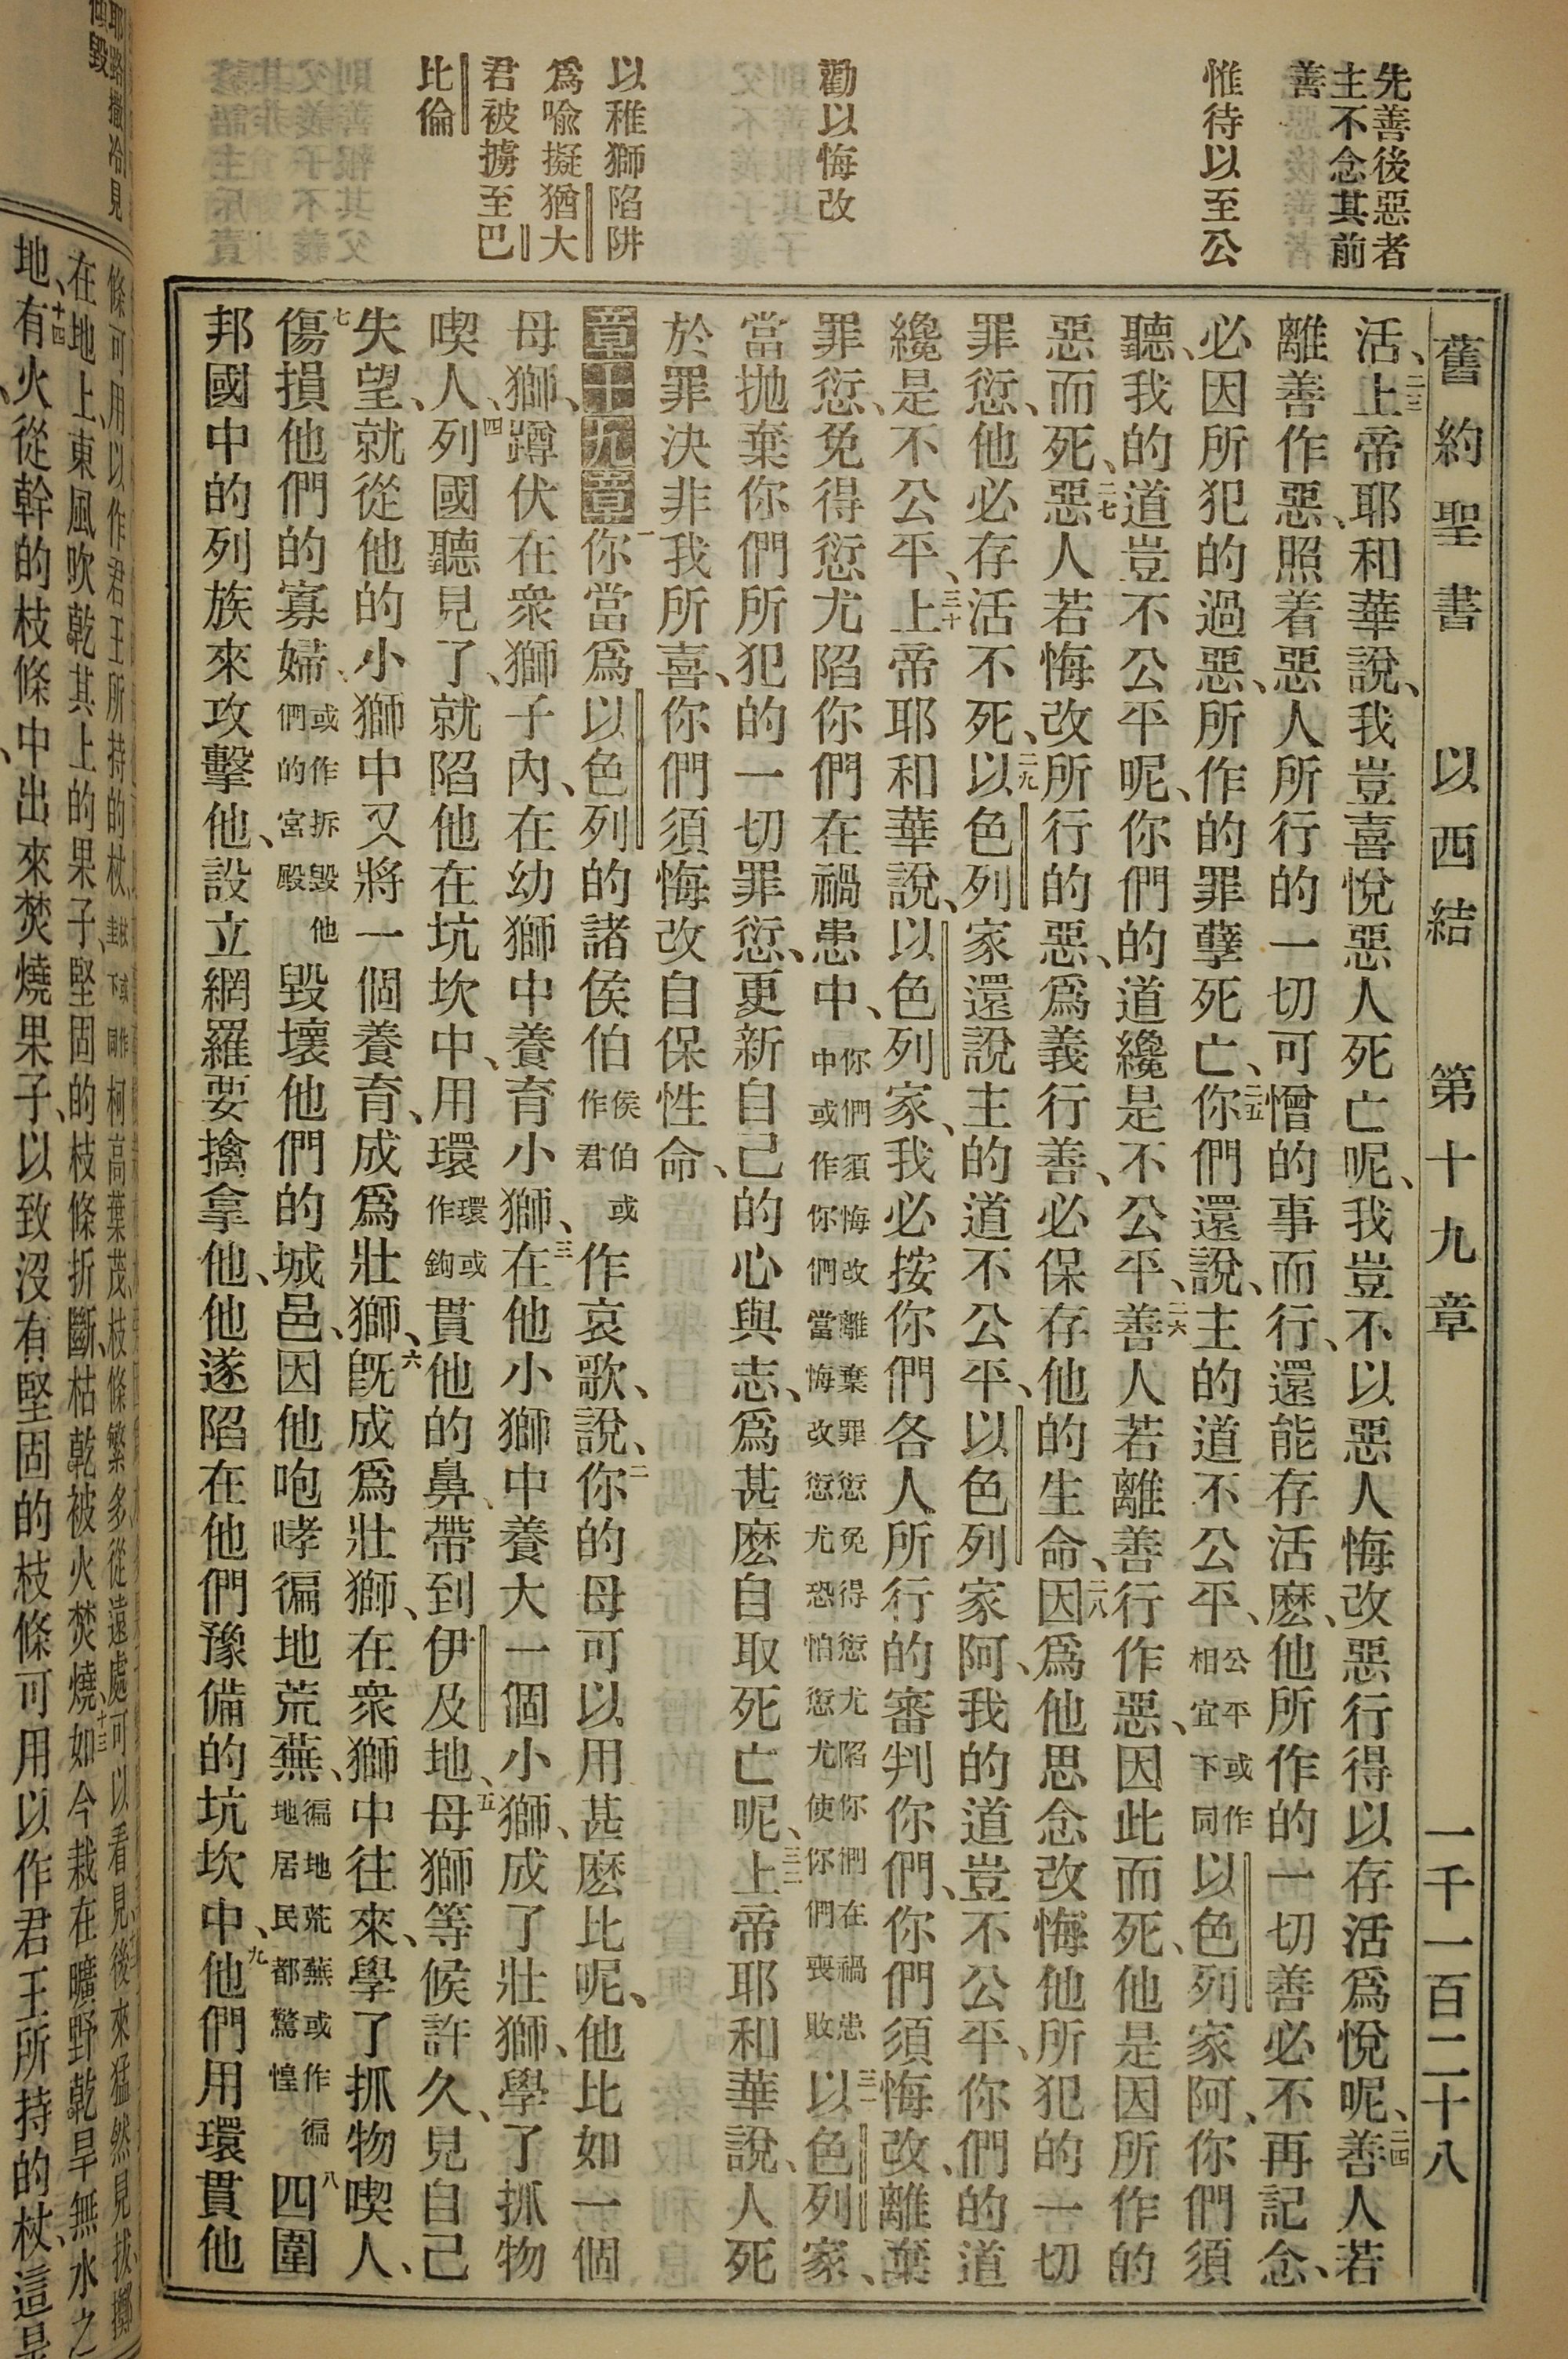 舊約聖書　以西結　第十九章　一千一百二十八
先善後惡者
主不念其前
善
惟待以至公
勸以悔改
以稚獅陷阱
爲喩擬猶大
君被擄至巴
比倫
活、二三上帝耶和華說、我豈喜悅惡人死亡呢、我豈不以惡人悔改惡行得以存活爲悅呢、二四善人若
離善作惡、照着惡人所行的一切可憎的事而行、還能存活麽、他所作的一切善必不再記念、
必因所犯的過惡、所作的罪孽死亡、二五你們還說、主的道不公平、公平或作相宜下同以色列家阿、你們須
聽、我的道豈不公平呢、你們的道纔是不公平、二六善人若離善行作惡、因此而死、他是因所作的
惡而死、二七惡人若悔改所行的惡、爲義行善、必保存他的生命、二八因爲他思念改悔他所犯的一切
罪愆、他必存活不死、二九以色列家還說主的道不公平、以色列家阿、我的道豈不公平、你們的道
纔是不公平、三十上帝耶和華說、以色列家、我必按你們各人所行的審判你們、你們須悔改、離棄
罪愆、免得愆尤陷你們在禍患中、你們須悔改離棄罪愆免得愆尤陷你們在禍患中或作你們當悔改愆尤恐怕愆尤使你們喪敗三一以色列家、
當抛棄你們所犯的一切罪愆、更新自己的心與志、爲甚麽自取死亡呢、三二上帝耶和華說、人死
於罪決非我所喜、你們須悔改自保性命、
第十九章一你當爲以色列的諸侯伯侯伯或作君作哀歌、說、二你的母可以用甚麽比呢、他比如一個
母獅、蹲伏在衆獅子內、在幼獅中養育小獅、三在他小獅中養大一個小獅、成了壯獅、學了抓物
喫人、四列國聽見了、就陷他在坑坎中、用環環或作鉤貫他的鼻、帶到伊及地、五母獅等候許久、見自己
失望、就從他的小獅中又將一個養育、成爲壯獅、六旣成爲壯獅、在衆獅中往來、學了抓物喫人、
七傷損他們的寡婦、或作拆毀他們的宮殿毀壞他們的城邑、因他咆哮徧地荒蕪、徧地荒蕪或作徧地居民都驚惶八四圍
邦國中的列族來攻擊他、設立網羅要擒拿他、他遂陷在他們豫備的坑坎中、九他們用環貫他
耶路撒冷見
傾毀
條可用以作君王所持的杖、柯高葉茂、枝條繁多從遠處可以看見後來猛然見拔擲
在地上、東風吹乾其上的果子、堅固的枝條折斷、枯乾被火焚燒、十三如今栽在曠野乾旱無水之
地、十四有火從幹的枝條中出來焚燒果子、以致沒有堅固的枝條可用以作君王所持的杖、這是